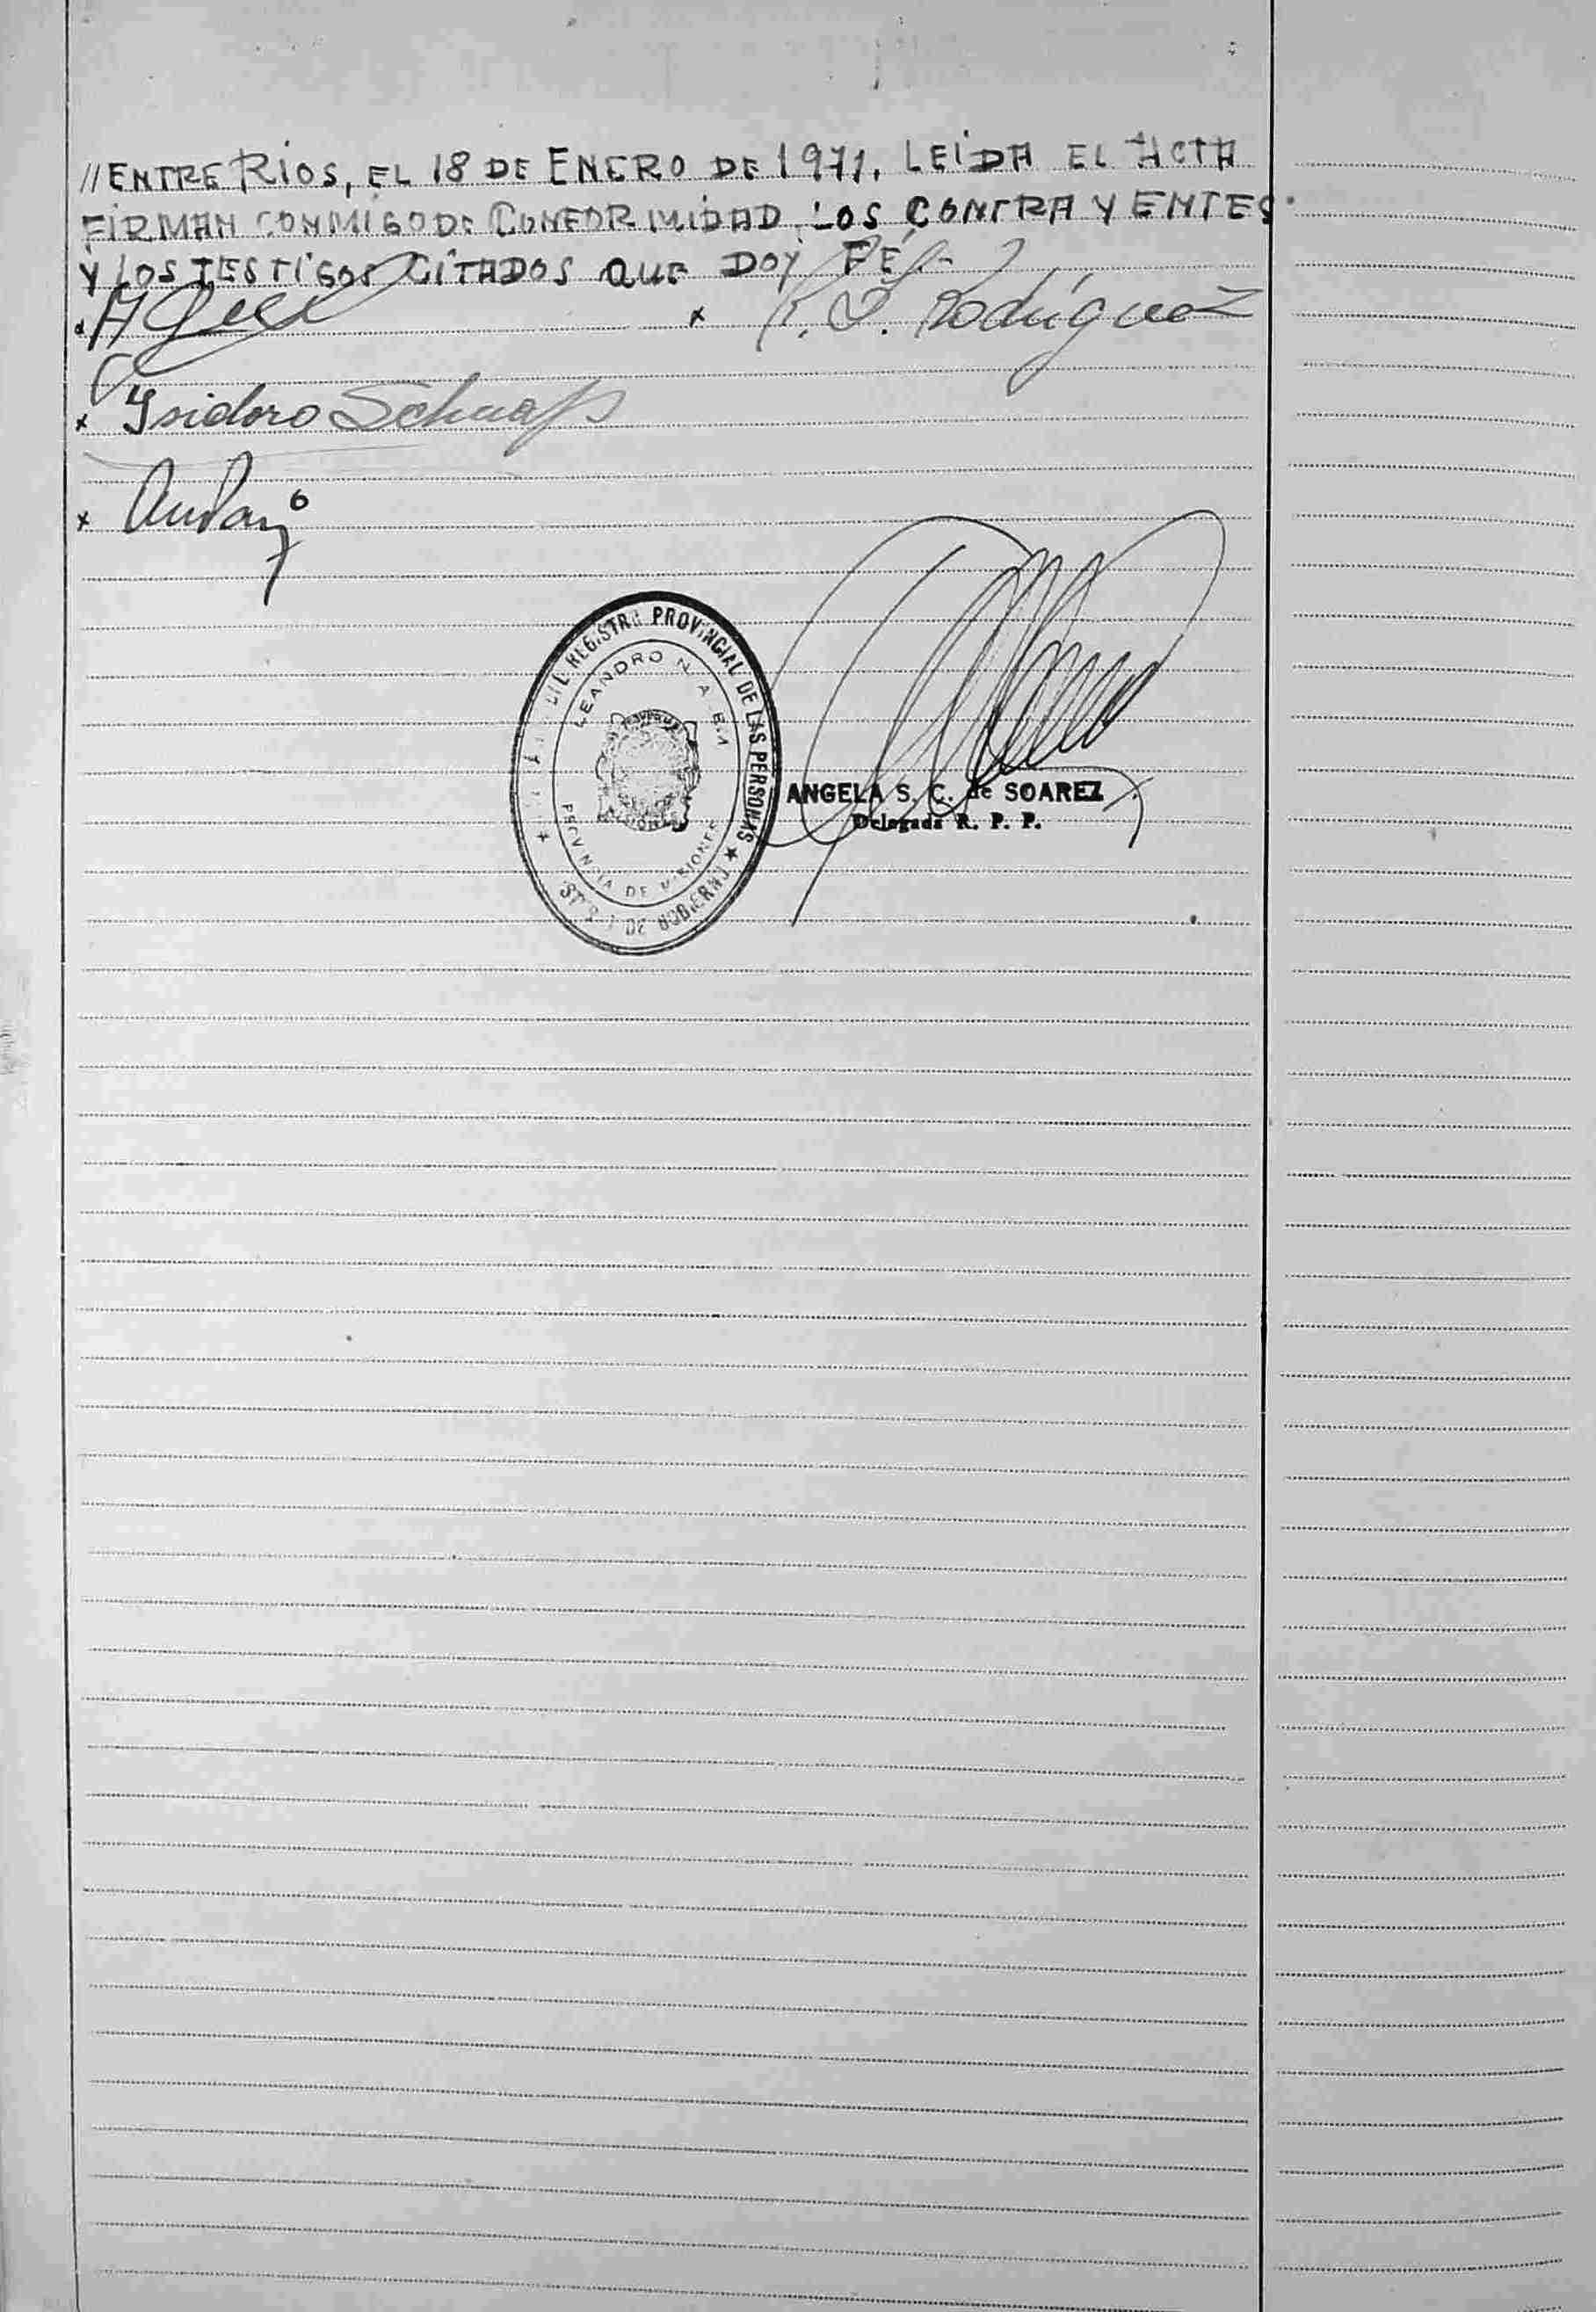 //ENTRE RIOS, EL 18 DE ENERO DE 1971. LEIDA EL ACTA
FIRMAN CONMIGO DE CONFORMIDAD LOS CONTRAYENTES
Y LOS TESTIGOS CITADOS QUE DOY FÉ.-
x x R. Rodríguez
x Isidoro Schnaps
x
REGISTRO PROVINCIAL DE LAS PERSONAS
LEANDRO N. ALEM
PROVINCIA DE MISIONES
DE GOBIERNO
ANGELA S. C. de SOAREZ
Delegada R. P. P.